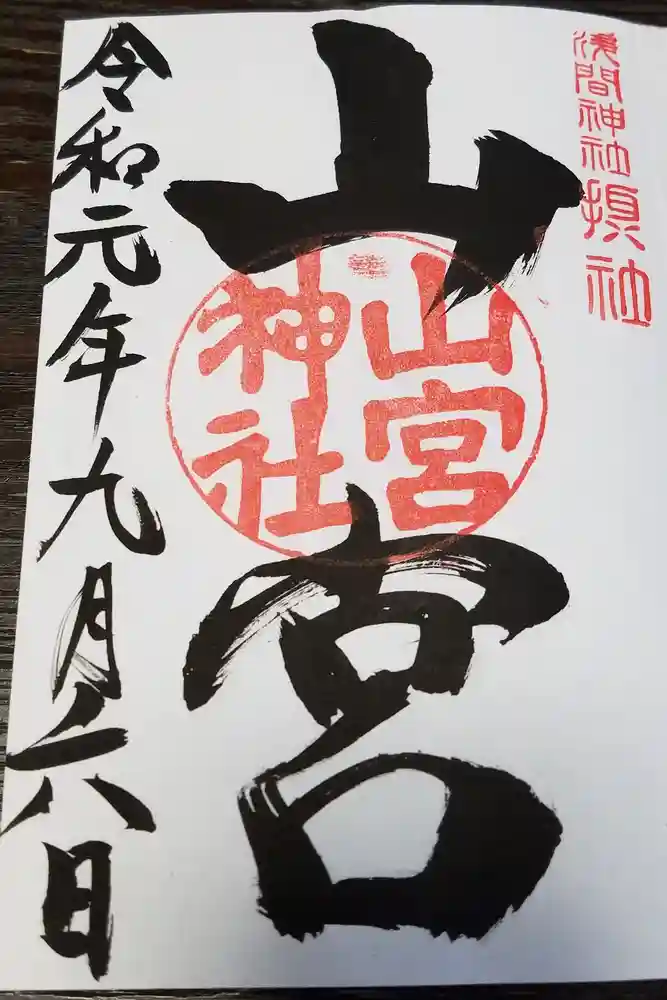 浅間神社摂社
山宮
山宮
神社
令和元年九月六日